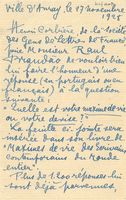 Ville d'Avray, le 17 novembre
1928
Henri Corbière de la Société
des Gens de Lettres de France
prie Monsieur Raul
Brandao de vouloir bien
lui faire l'honneur d'une
réponse (en portugais avec
français) à la question
suivante :
Quelle est votre maxime de vie
ou votre devise ?
La feuille ci-jointe sera
insérée dans son livre de
"Maximes de vie des Ecrivains
contemporains du Monde
entier"
Plus de 1.200 réponses lui
sont déjà parvenues.